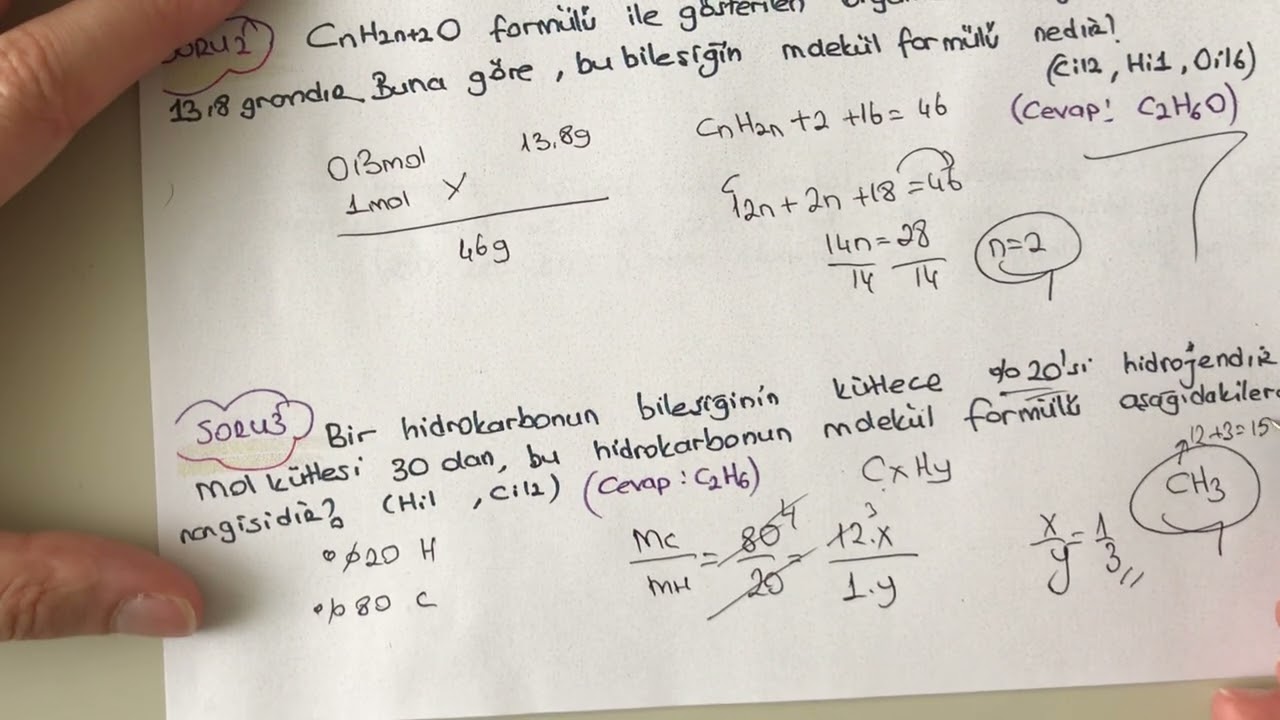 SORU2 CnH2n+2O formülü ile gösterilen
13,8 gramdır. Buna göre, bu bileşiğin molekül formülü nedir?
(C:12, H:1, O:16)
(Cevap: C2H6O)
0,3mol 13,8g
1mol X
46g
CnH2n +2 +16 = 46
12n + 2n +18 = 46
14n = 28
14 14
n=2
SORU3 Bir hidrokarbonun bileşiğinin kütlece %20'si hidrojendir
mol kütlesi 30 dan, bu hidrokarbonun molekül formülü aşağıdakiler
hangisidir? (H:1, C:12) (Cevap: C2H6)
CxHy
%20 H
%80 C
mc/mH = 80/20 = 12.x/1.y
4
3
x/y = 1/3
12+3=15
CH3